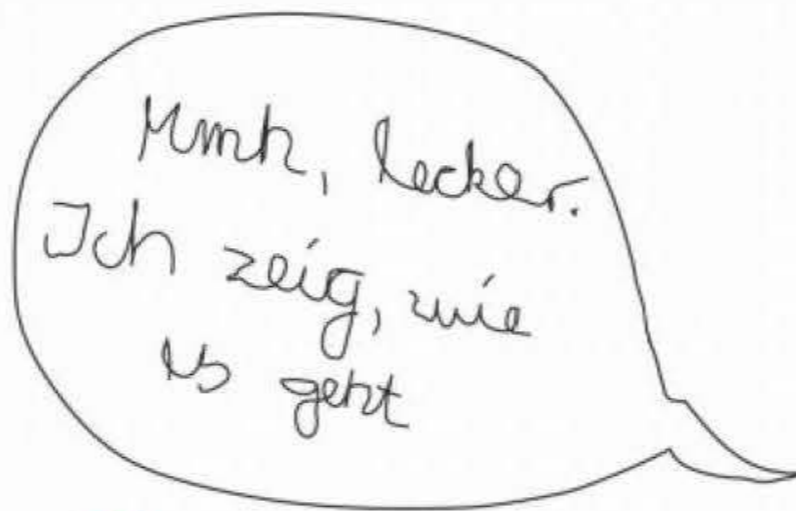 Mmh, lecker.
Ich zeig, wie
es geht